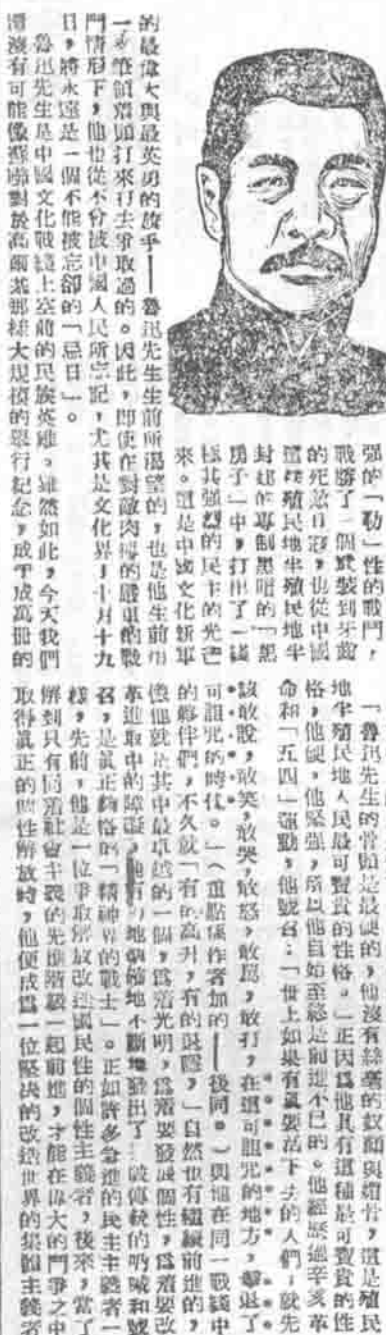 强的「韌」性的戰鬥，
戰勝了一個武裝到牙齒
的死敵日寇，也從中國
這殖民地半殖民地半
封建的專制黑暗的「黑
房子」中，打出了一綫
極其强烈的民主的光芒
來。這是中國文化新軍
的最偉大與最英勇的旗手——魯迅先生生前所渴望的，也是他生前用
一枝筆桿落如打來打去爭取過的。因此，即使在對敵肉搏的嚴重的戰
鬥情形下，他也從不會被中國人民所忘記，尤其是文化界！十月十九
日，將永遠是一個不能被忘卻的「忌日」。
魯迅先生是中國文化戰綫上空前的民族英雄。雖然如此，今天我們
還沒有可能像蘇聯對於高爾基那樣大規模的舉行紀念，成千成萬冊的
「魯迅先生的骨頭是最硬的，他沒有絲毫的奴顏與媚骨，這是殖民
地半殖民地人民最可寶貴的性格。」正因爲他具有這種最可寶貴的性
格，他硬，他堅强，所以他自始至終是前進不已的。他經歷過辛亥革
命和「五四」運動，他號召：「世上如果有眞要活下去的人們，就先
該敢說，敢笑，敢哭，敢怒，敢罵，敢打，在這可詛咒的地方，擊退了
可詛咒的時代。」（重點係作者加的——後同。）與他在同一戰綫中
的夥伴們，不久就「有的高升，有的退隱，」自然也有繼續前進的，
像他就是其中最卓越的一個，爲着光明，爲着要發展個性，爲着要改
革進取中的障礙，地不斷地發出了破傳統的吶喊和號
召，是眞正夠格的「精神界的戰士」。正如許多急進的民主主義者一
樣，先前，他是一位爭取解放改造國民性的個性主義者，後來，當了
解到只有同着社會主義的光焰階級一起前進，才能在偉大的鬥爭之中
取得眞正的個性解放時，他便成爲一位堅決的改造世界的集體主義者